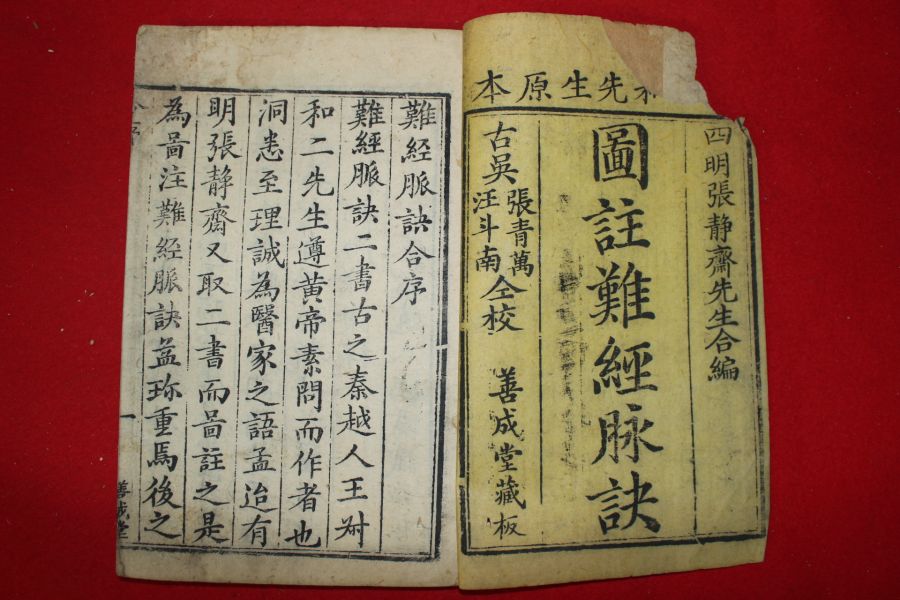 先生原本
四明張靜齋先生合編
圖註難經脉訣
古吳
張青萬
汪斗南
仝校
善成堂藏板
難經脈訣合序
難經脈訣二書古之秦越人王叔
和二先生遵黃帝素問而作者也
洞悉至理誠為醫家之語孟迨有
明張靜齋又取二書而啚註之是
為啚注難經脈訣益珎重焉後之
一
善成堂